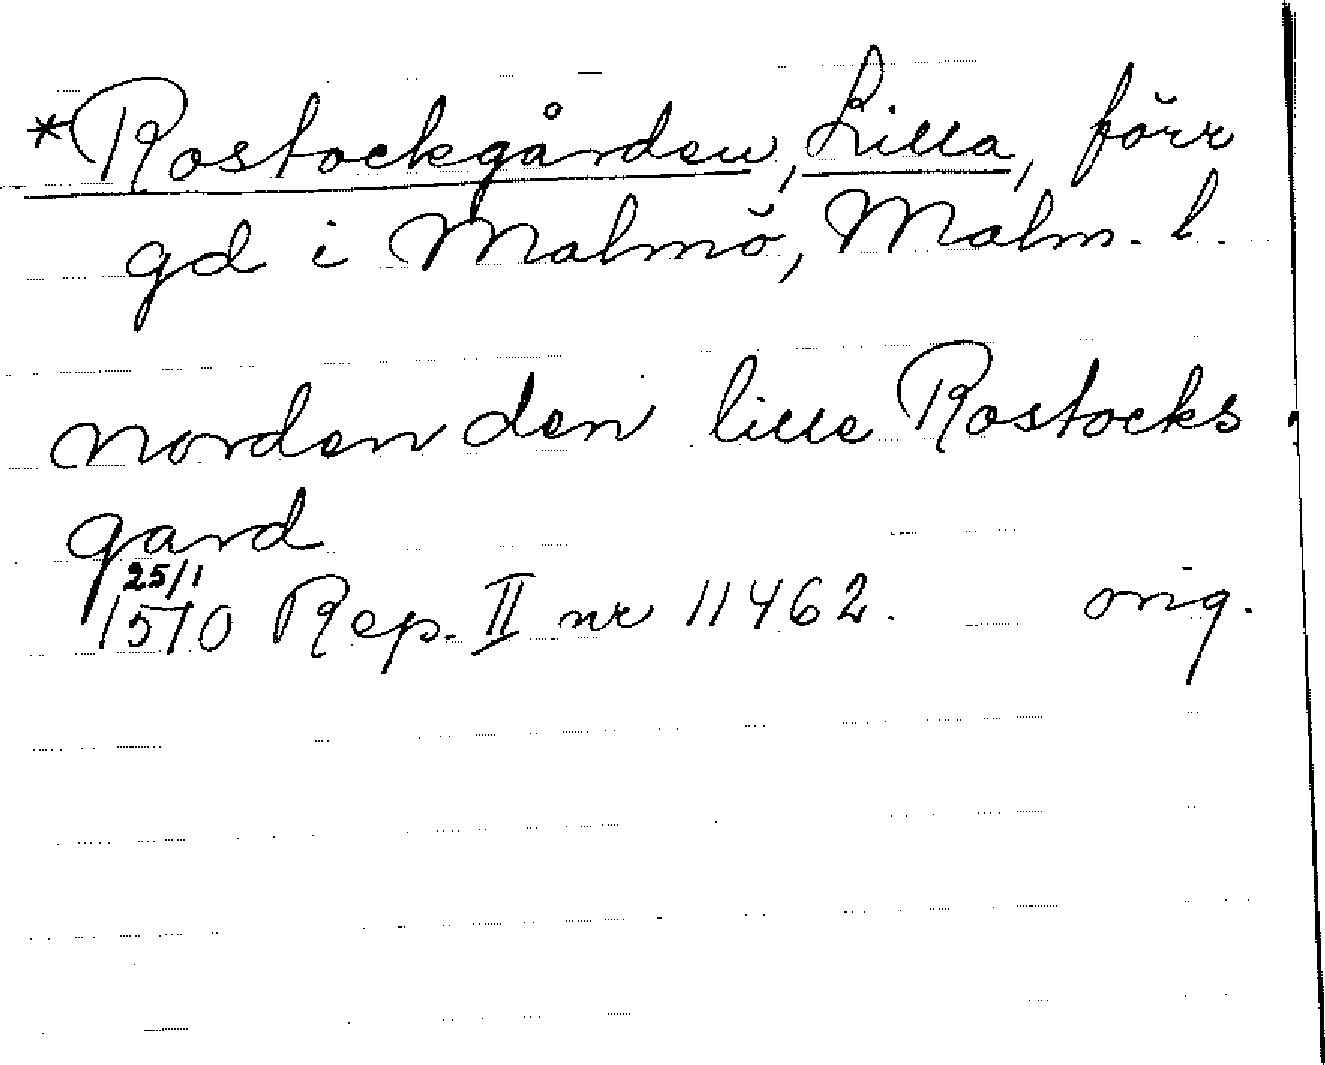 *Rostockgården, Lilla, förr
gd i Malmö, Malm. l.
norden den lille Rostocks
gard
25/1
1570 Rep. II nr 11462. orig.